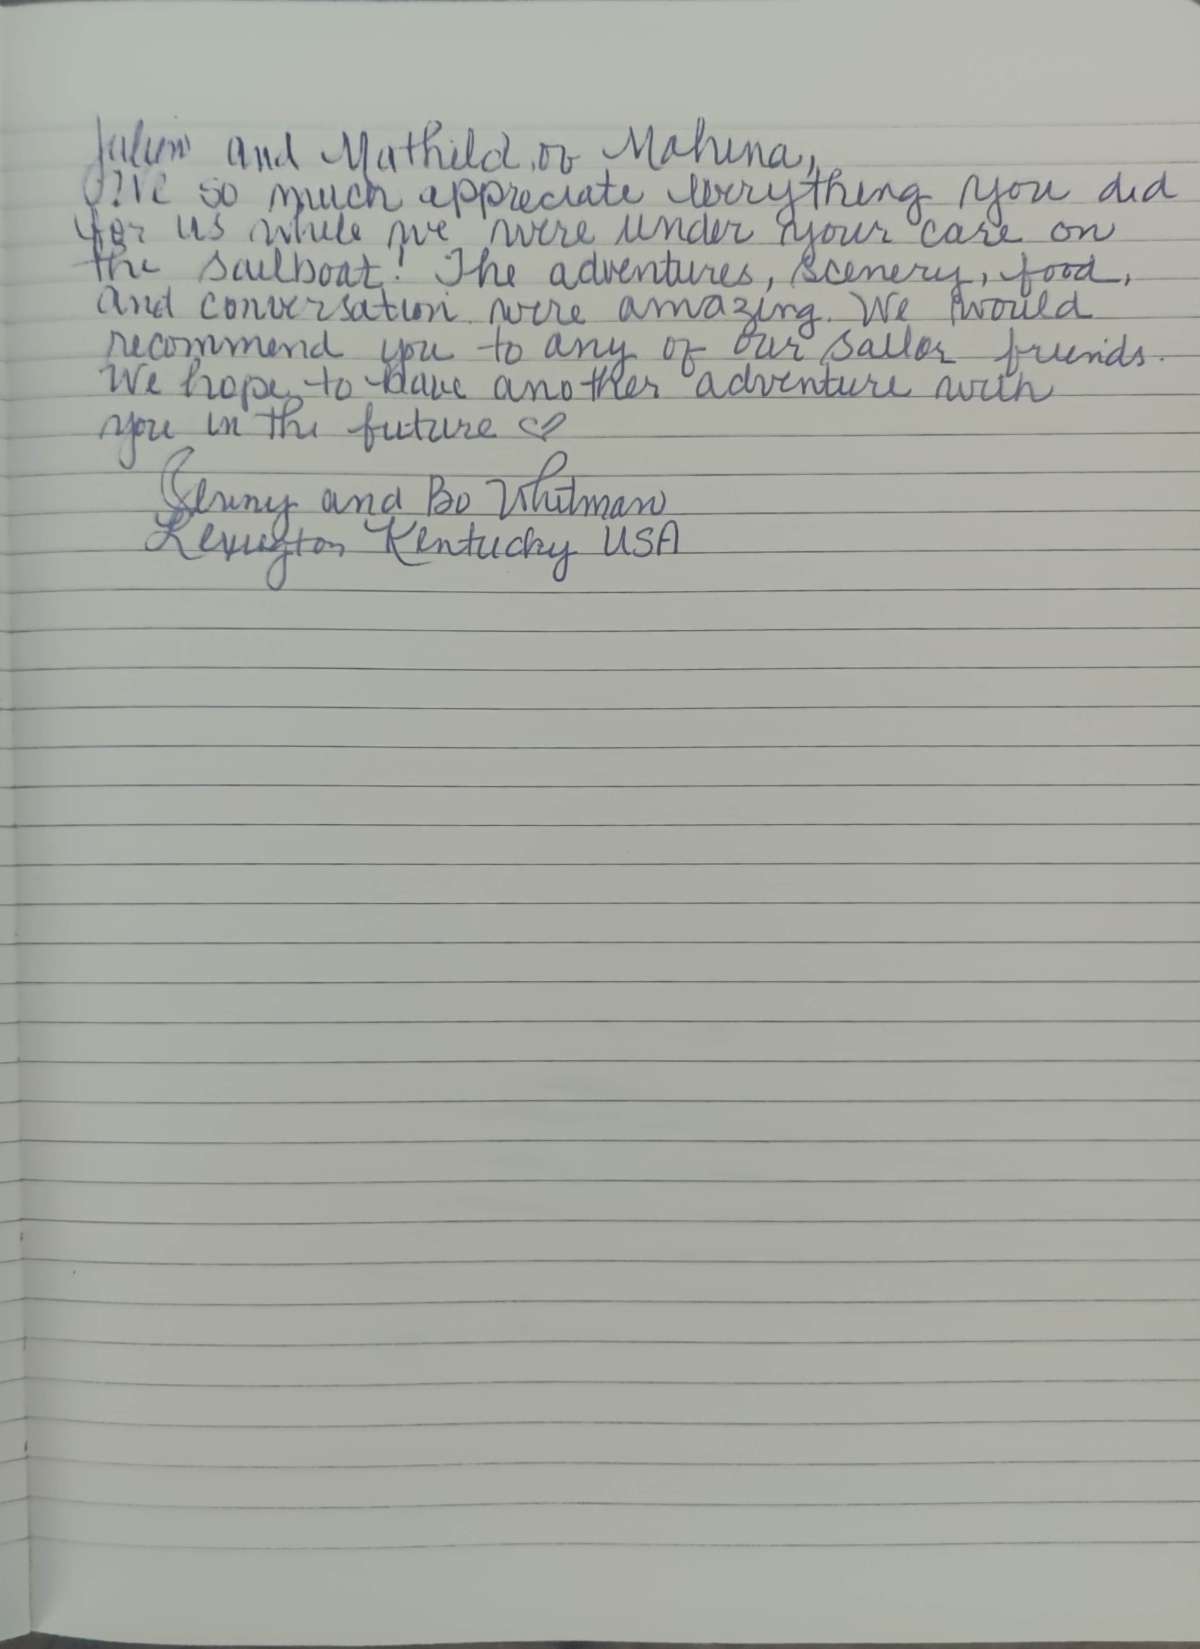 and Mathild of Mahina,
We so much appreciate everything you did
for us while we were under your care on
the sailboat! The adventures, scenery, food,
and conversation were amazing. We would
recommend you to any of our sailor friends.
We hope to have another adventure with
you in the future ♡
Jenny and Bo Whitman
Lexington Kentucky USA